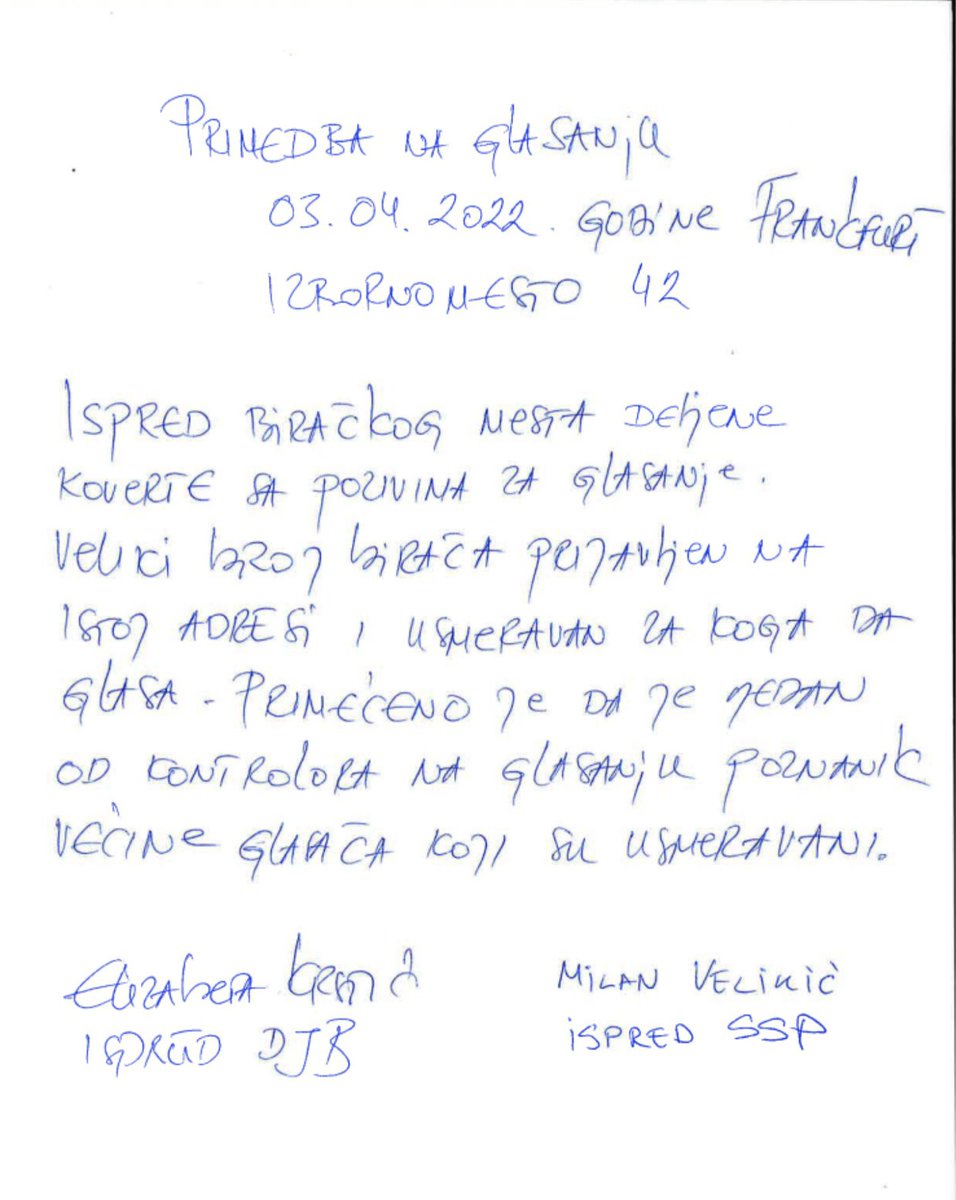 PRIMEDBA NA GLASANJU
03.04.2022. GODINE FRANKFURT
IZBORNO MESTO 42
ISPRED BIRAČKOG MESTA DELJENE
KOVERTE SA POZIVIMA ZA GLASANJE.
VELIKI BROJ BIRAČA PRIJAVLJEN NA
ISTOJ ADRESI I USMERAVAN ZA KOGA DA
GLASA - PRIMEĆENO JE DA JE JEDAN
OD KONTROLORA NA GLASANJU POZNANIK
VEĆINE GLASAČA KOJI SU USMERAVANI.
ELIZABETA
MILAN VELIKIĆ
ISPRED DJB
ISPRED SSP